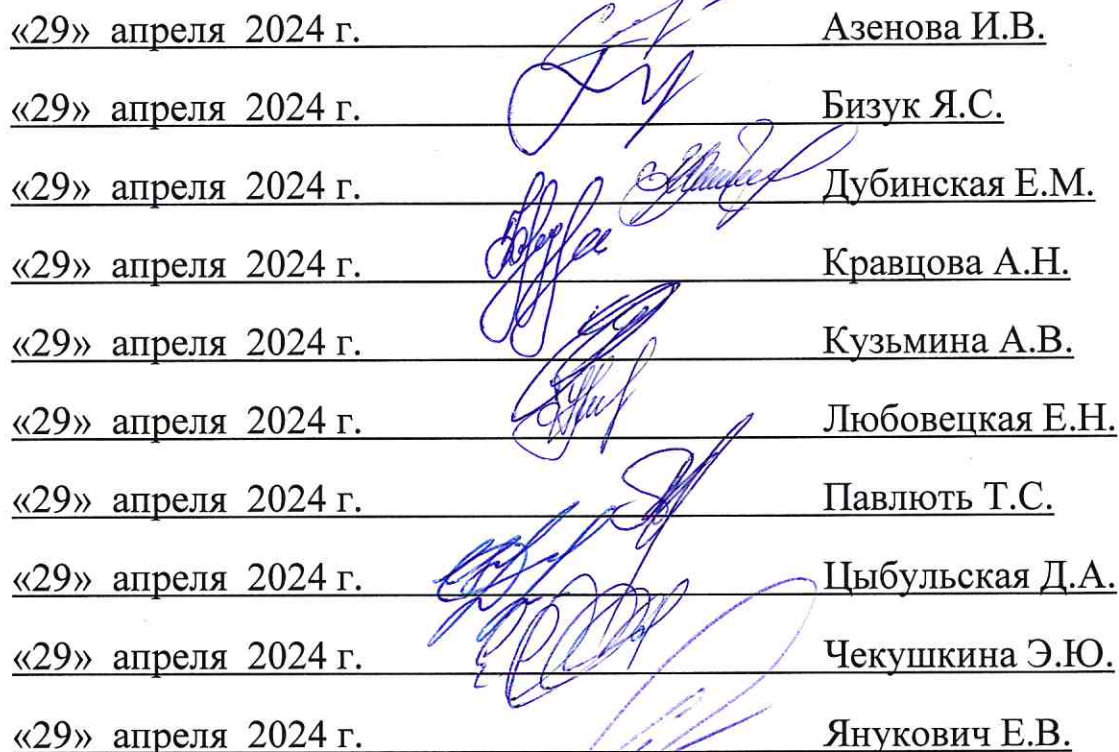 «29» апреля 2024 г. Азенова И.В.
«29» апреля 2024 г. Бизук Я.С.
«29» апреля 2024 г. Дубинская Е.М.
«29» апреля 2024 г. Кравцова А.Н.
«29» апреля 2024 г. Кузьмина А.В.
«29» апреля 2024 г. Любовецкая Е.Н.
«29» апреля 2024 г. Павлють Т.С.
«29» апреля 2024 г. Цыбульская Д.А.
«29» апреля 2024 г. Чекушкина Э.Ю.
«29» апреля 2024 г. Янукович Е.В.